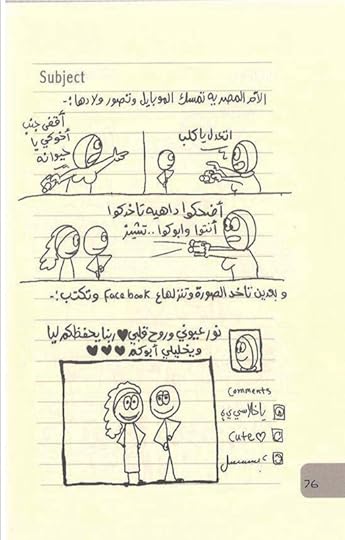 Subject
الأم المصريه تمسك الموبايل وتصور ولادها :-
أقفى جنب
أخوكي يا
حيوانه
اتعدل يا كلب
أضحكوا داهيه تاخدكوا
أنتوا وابوكوا .. تشييز
وبعدين تاخد الصورة وتنزلها ع Facebook وتكتب :-
نور عيوني وروح قلبي ♥ ربنا يحفظكم ليا
ويخليلي أبوكم ♥♥♥
Comments
يا خلاسي ي ي
Cute ♡
عسسسل
76